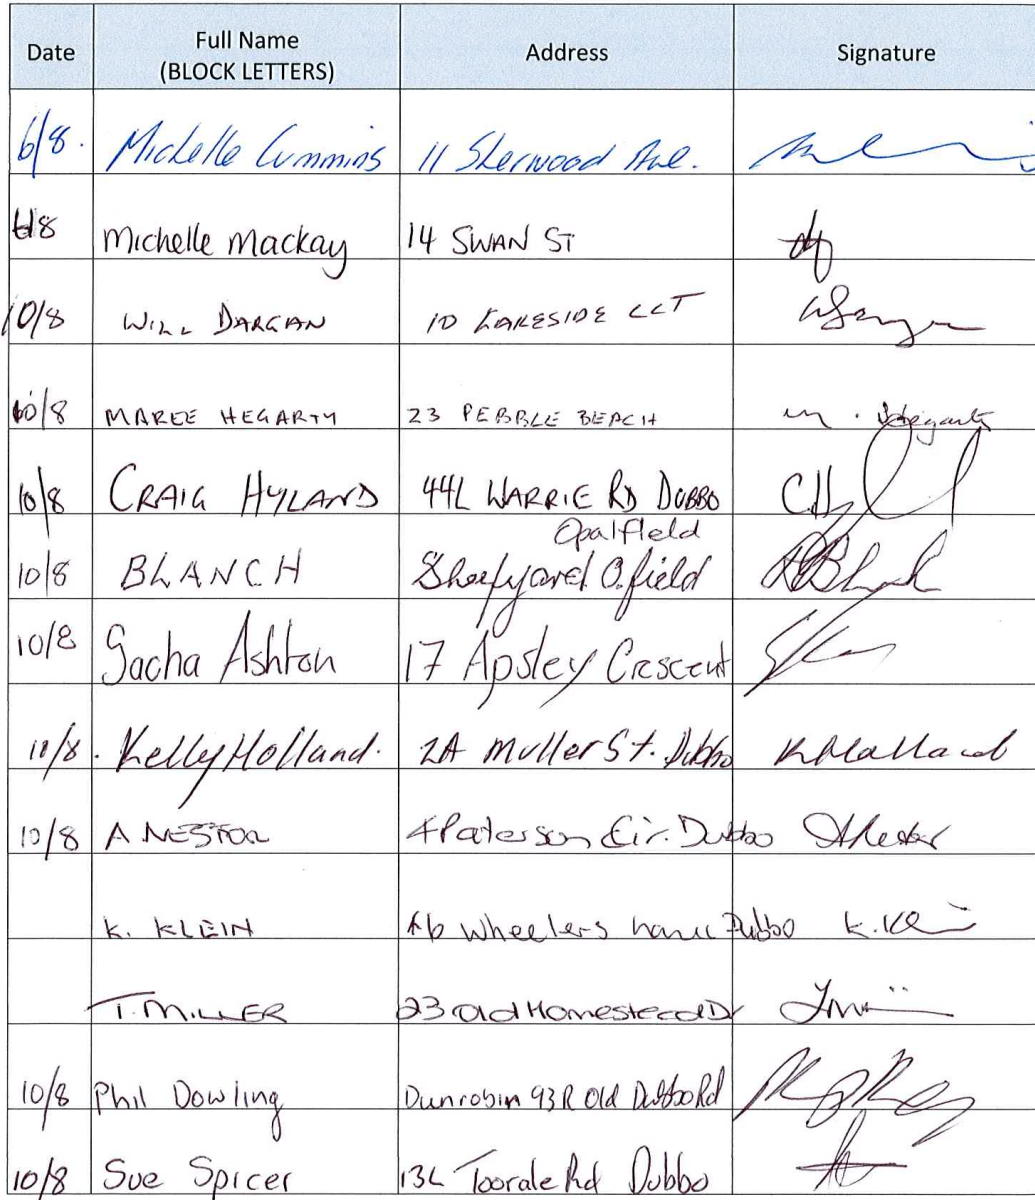 Date Full Name (BLOCK LETTERS) Address Signature
6/8. Michelle Cummins 11 Sherwood Ave.
6/8 Michelle Mackay 14 SWAN ST
10/8 WILL DARGAN 10 LAKESIDE CCT
10/8 MAREE HEGARTY 23 PEBBLE BEACH M. Hegarty
10/8 CRAIG HYLAND 44L WARRIE RD DUBBO
Opalfield
10/8 BLANCH Sheepyard O.field
10/8 Sacha Ashton 17 Apsley Crescent
10/8. Kelly Holland. 2A Muller St. Dubbo KHolland
10/8 A NESTOR 4 Paterson Cir. Dubbo ANestor
K. KLEIN Wheelers Dubbo K.Klein
T. MILLER 23 Old Homestead Dr
10/8 Phil Dowling Dunrobin 93R Old Dubbo Rd
10/8 Sue Spicer 13L Toorale Rd Dubbo